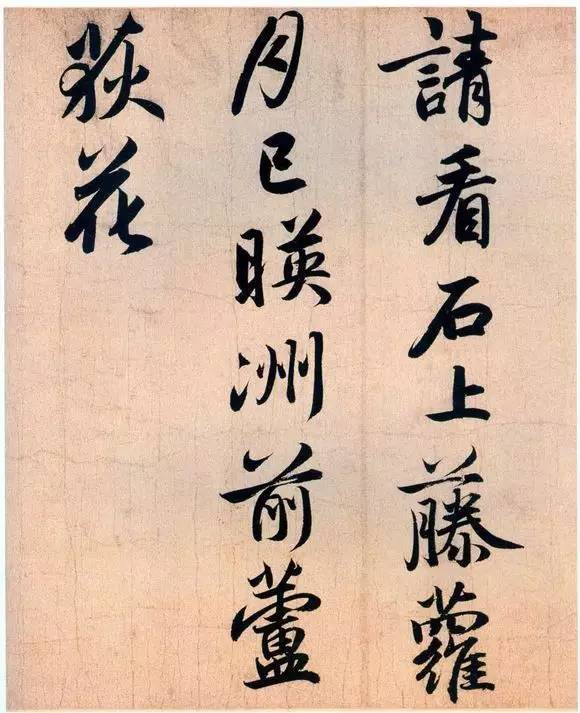 請看石上藤蘿
月已暎洲前蘆
荻花